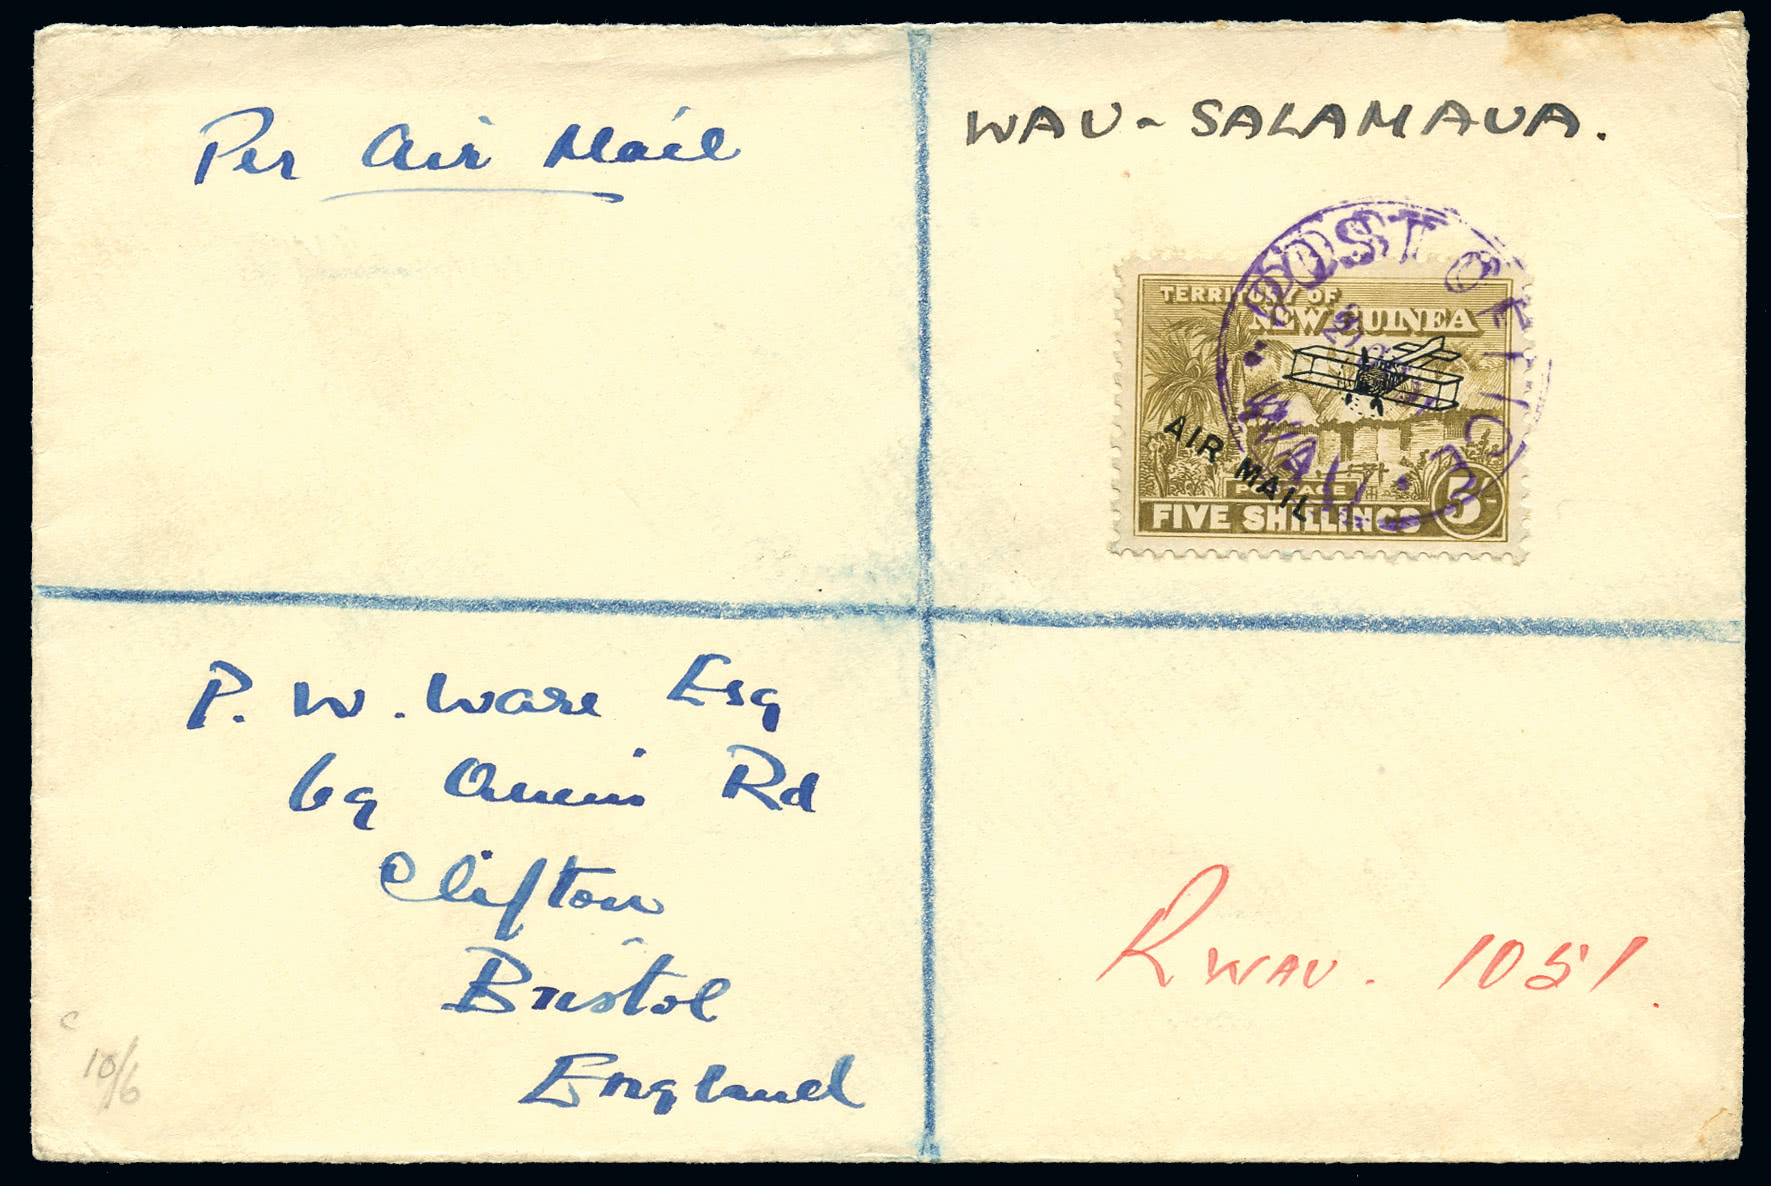 Per Air Mail
WAU - SALAMAUA.
POST OFFICE
WAU
TERRITORY OF
NEW GUINEA
AIR MAIL
POSTAGE
FIVE SHILLINGS 5/-
P. W. Ware Esq
69 Rd
Clifton
Bristol
England
R WAU. 1051.
c
10/6